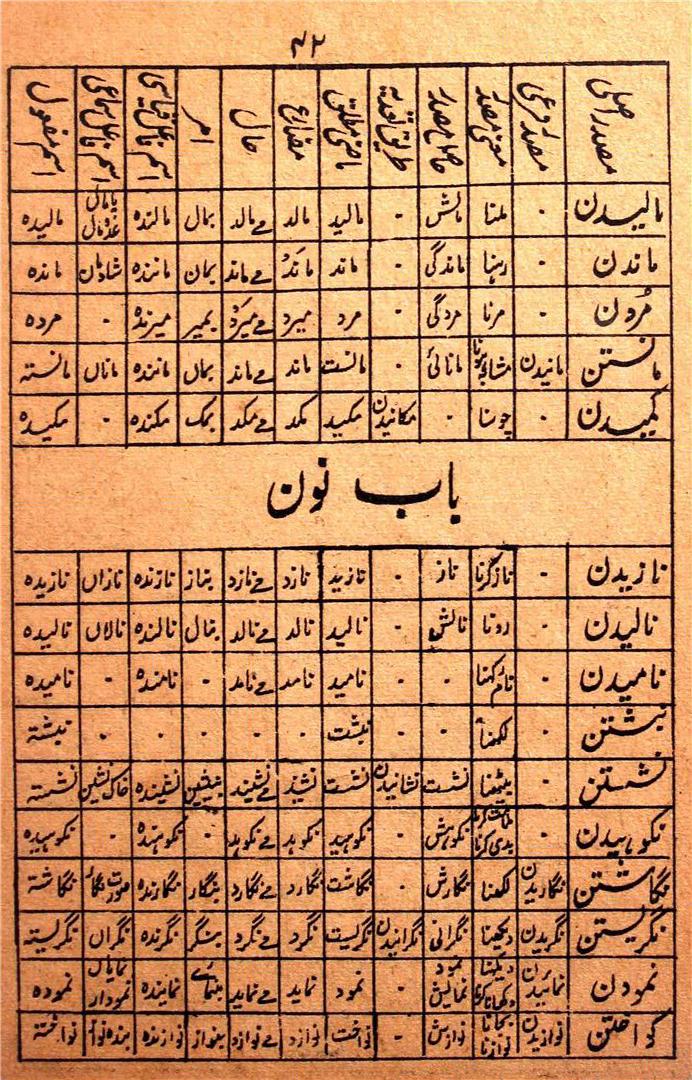 ۴۲
مصدر اصلی مصدر فرعی معنی مصدر حاصل مصدر طریق تعدیہ ماضی مطلق مضارع حال امر اسم فاعل قیاسی اسم فاعل سماعی اسم مفعول
مالیدن - ملنا مالش - مالید مالد مے مالد بمال مالندہ پامال مالیدہ
ماندن - رہنا ماندگی - ماند ماند مے ماند بمان مانندہ شادمان ماندہ
مُردن - مرنا مردگی - مرد میرد مے میرد بمیر میرندہ - مردہ
مانستن مانیدن مشابہ ہونا مانائی - مانست ماند مے ماند بماں مانندہ ماناں مانستہ
مکیدن - چوسنا - مکانیدن مکید مکد مے مکد بمک مکندہ - مکیدہ
باب نون
نازیدن - ناز کرنا ناز - نازید نازد مے نازد بناز نازندہ نازاں نازیدہ
نالیدن - رونا نالش - نالید نالد مے نالد بنال نالندہ نالاں نالیدہ
نامیدن - نام کہنا - - نامید نامد مے نامد - نامندہ - نامیدہ
نبشتن - لکھنا - - نبشت - - - - - نبشتہ
نشستن - بیٹھنا نشست نشانیدن نشست نشیند مے نشیند بنشین نشیندہ خاک نشین نشستہ
نکوہیدن - بدی کرنا نکوہش - نکوہید نکوہد مے نکوہد - نکوہندہ - نکوہیدہ
نگاشتن نگاریدن لکھنا نگارش - نگاشت نگارد مے نگارد بنگار نگارندہ صورت نگار نگاشتہ
نگریستن نگریدن دیکھنا نگرانی نگرانیدن نگریست نگرد مے نگرد بنگر نگرندہ نگراں نگریستہ
نمودن نمائیدن دیکھنا دکھانا کرنا نمود نمایش - نمود نماید مے نماید بنمائے نمایندہ نمایاں نمودار نمودہ
نواختن نوازیدن بجانا نوازنا نوازش - نواخت نوازد مے نوازد بنواز نوازندہ بندہ نواز نواختہ